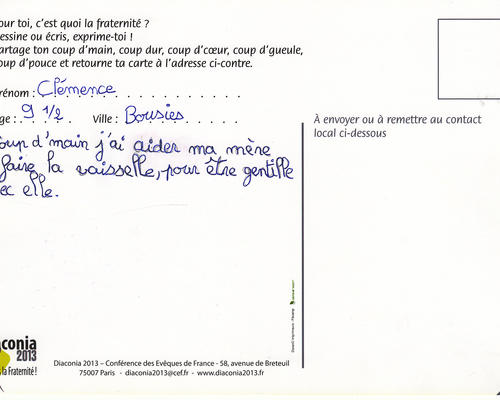 our toi, c'est quoi la fraternité ?
essine ou écris, exprime-toi !
artage ton coup d'main, coup dur, coup d'cœur, coup d'gueule,
oup d'pouce et retourne ta carte à l'adresse ci-contre.
rénom : Clémence
ge : 9 1/2 Ville : Bousies
oup d'main j'ai aider ma mère
faire la vaisselle, pour être gentille
ec elle.
À envoyer ou à remettre au contact
local ci-dessous
aconia
2013
la Fraternité !
Diaconia 2013 – Conférence des Evêques de France - 58, avenue de Breteuil
75007 Paris - diaconia2013@cef.fr - www.diaconia2013.fr